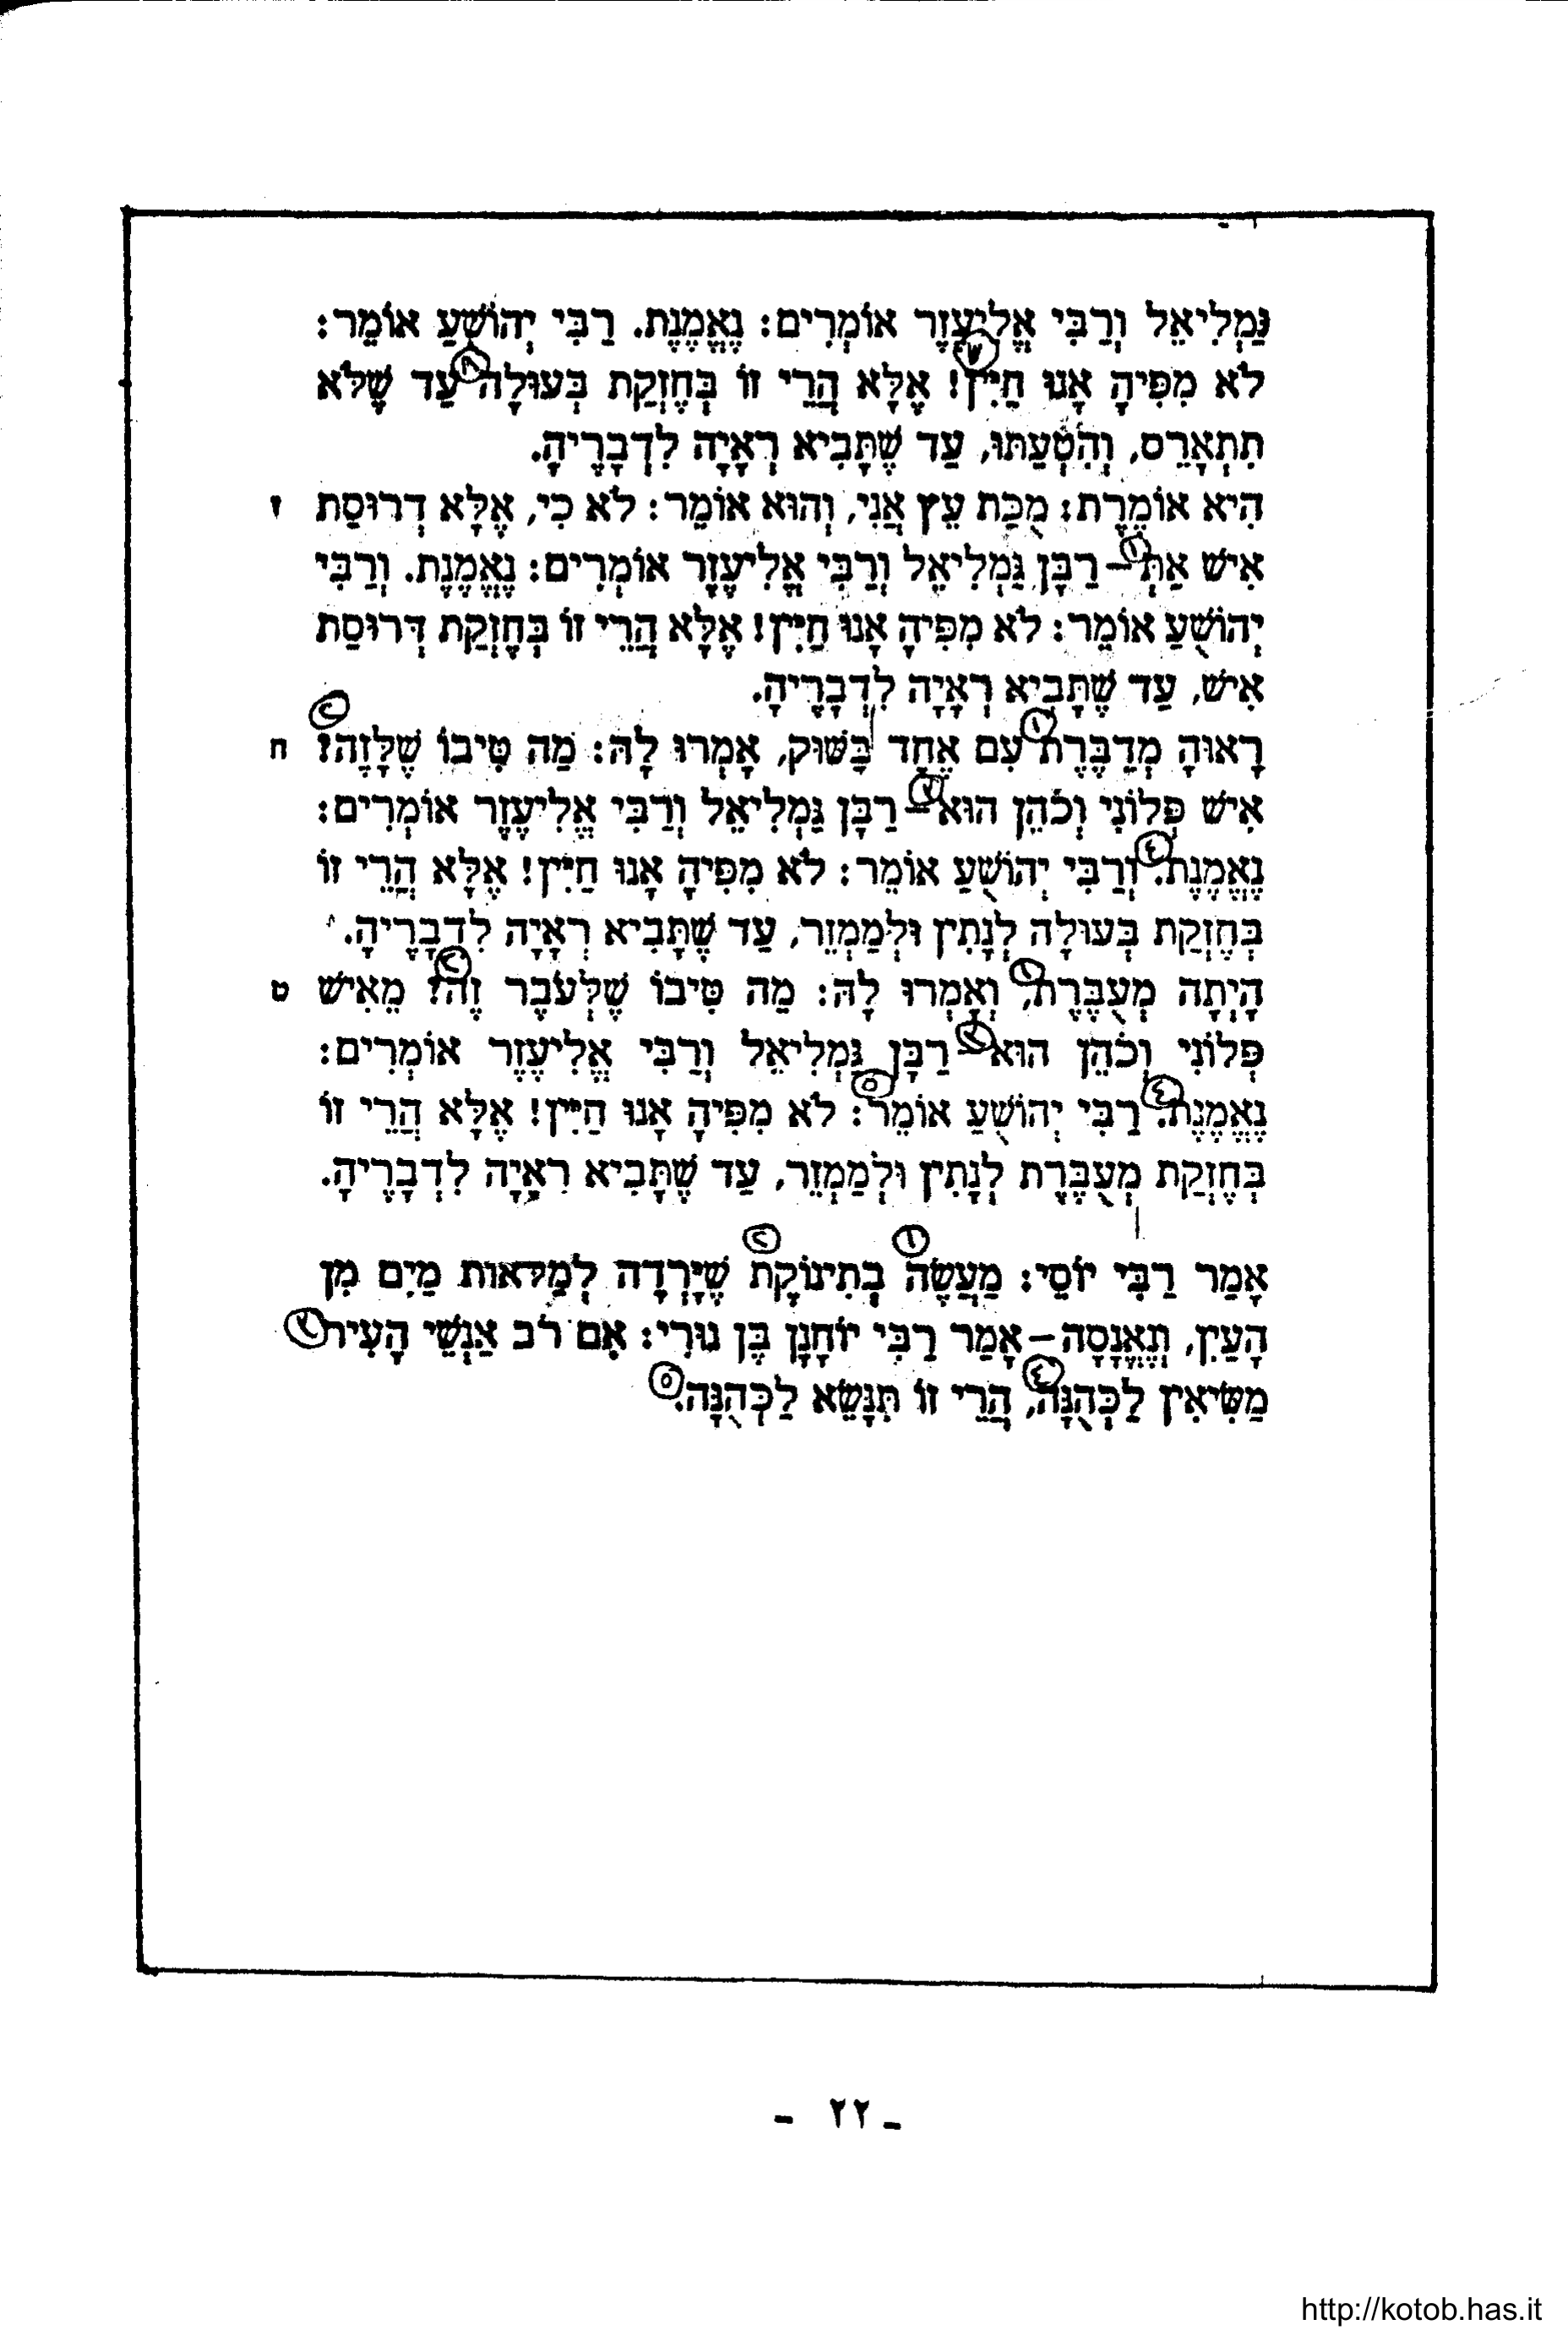 גַּמְלִיאֵל וְרַבִּי אֱלִיעֶזֶר אוֹמְרִים: נֶאֱמֶנֶת. רַבִּי יְהוֹשֻׁעַ אוֹמֵר:
לֹא מִפִּיהָ אָנוּ חַיִּין! אֶלָּא הֲרֵי זוֹ בְּחֶזְקַת בְּעוּלָה עַד שֶׁלֹּא
תִתְאָרֵס, וְהִטְעַתּוּ, עַד שֶׁתָּבִיא רְאָיָה לִדְבָרֶיהָ.
ז הִיא אוֹמֶרֶת: מֻכַּת עֵץ אֲנִי, וְהוּא אוֹמֵר: לֹא כִי, אֶלָּא דְרוּסַת
אִישׁ אַתְּ – רַבָּן גַּמְלִיאֵל וְרַבִּי אֱלִיעֶזֶר אוֹמְרִים: נֶאֱמֶנֶת. וְרַבִּי
יְהוֹשֻׁעַ אוֹמֵר: לֹא מִפִּיהָ אָנוּ חַיִּין! אֶלָּא הֲרֵי זוֹ בְּחֶזְקַת דְּרוּסַת
אִישׁ, עַד שֶׁתָּבִיא רְאָיָה לִדְבָרֶיהָ.
ח רָאוּהָ מְדַבֶּרֶת עִם אֶחָד בַּשּׁוּק, אָמְרוּ לָהּ: מַה טִּיבוֹ שֶׁלָּזֶה?
אִישׁ פְּלוֹנִי וְכֹהֵן הוּא – רַבָּן גַּמְלִיאֵל וְרַבִּי אֱלִיעֶזֶר אוֹמְרִים:
נֶאֱמֶנֶת. וְרַבִּי יְהוֹשֻׁעַ אוֹמֵר: לֹא מִפִּיהָ אָנוּ חַיִּין! אֶלָּא הֲרֵי זוֹ
בְּחֶזְקַת בְּעוּלָה לְנָתִין וּלְמַמְזֵר, עַד שֶׁתָּבִיא רְאָיָה לִדְבָרֶיהָ.
ט הָיְתָה מְעֻבֶּרֶת, וְאָמְרוּ לָהּ: מַה טִּיבוֹ שֶׁלְּעֹבֶר זֶה? מֵאִישׁ
פְּלוֹנִי וְכֹהֵן הוּא – רַבָּן גַּמְלִיאֵל וְרַבִּי אֱלִיעֶזֶר אוֹמְרִים:
נֶאֱמֶנֶת. רַבִּי יְהוֹשֻׁעַ אוֹמֵר: לֹא מִפִּיהָ אָנוּ חַיִּין! אֶלָּא הֲרֵי זוֹ
בְּחֶזְקַת מְעֻבֶּרֶת לְנָתִין וּלְמַמְזֵר, עַד שֶׁתָּבִיא רְאָיָה לִדְבָרֶיהָ.
אָמַר רַבִּי יוֹסֵי: מַעֲשֶׂה בְתִינוֹקֶת שֶׁיָּרְדָה לְמַלֹּאות מַיִם מִן
הָעַיִן, וְנֶאֱנָסָה – אָמַר רַבִּי יוֹחָנָן בֶּן נוּרִי: אִם רֹב אַנְשֵׁי הָעִיר
מַשִּׂיאִין לַכְּהֻנָּה, הֲרֵי זוֹ תִּנָּשֵׂא לַכְּהֻנָּה.
- ٢٢ -
http://kotob.has.it